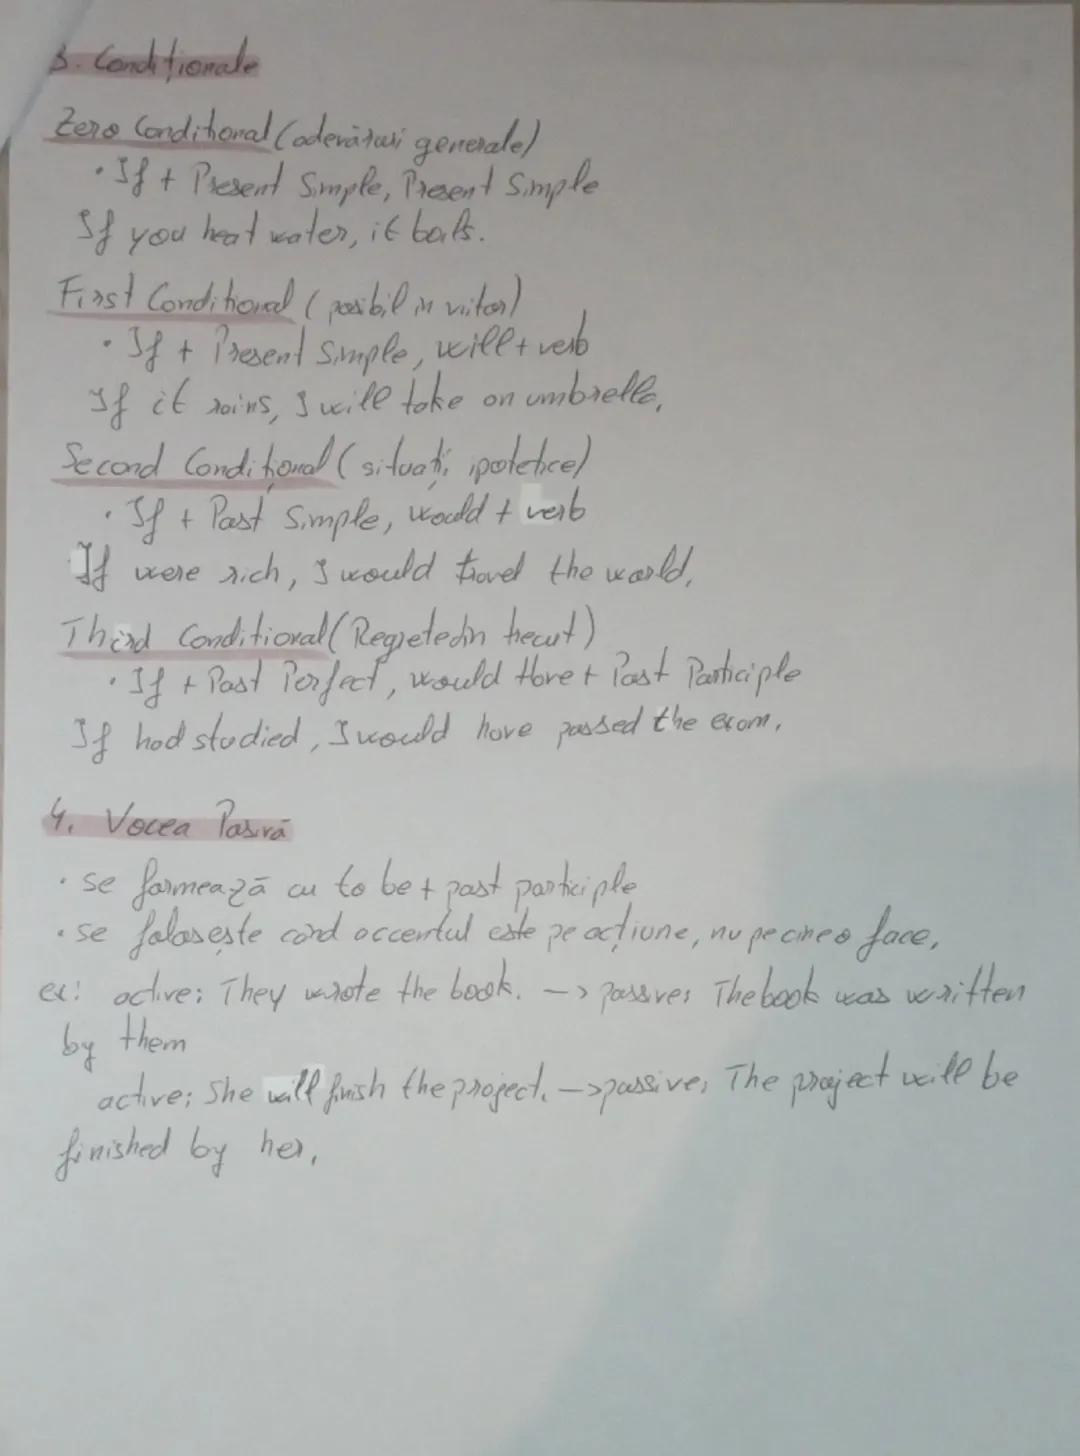 3. Condiționale
Zero Conditional (adevăruri generale)
• If + Present Simple, Present Simple
If you heat water, it boils.
First Conditional (posibil in viitor)
• If + Present Simple, will + verb
If it rains, I will take an umbrella.
Second Condițional (situații ipotetice)
• If + Past Simple, would + verb
If were rich, I would travel the world.
Third Conditional (Regrete din trecut)
• If + Past Perfect, would Have + Past Participle
If had studied, I would have passed the exam.
4. Vocea Pasivă
• se formează cu to be + past participle
• se folosește când accentul este pe acțiune, nu pe cine o face.
ex: active: They wrote the book. -> passive: The book was written
by them
active: She will finish the project. -> passive: The project will be
finished by her.